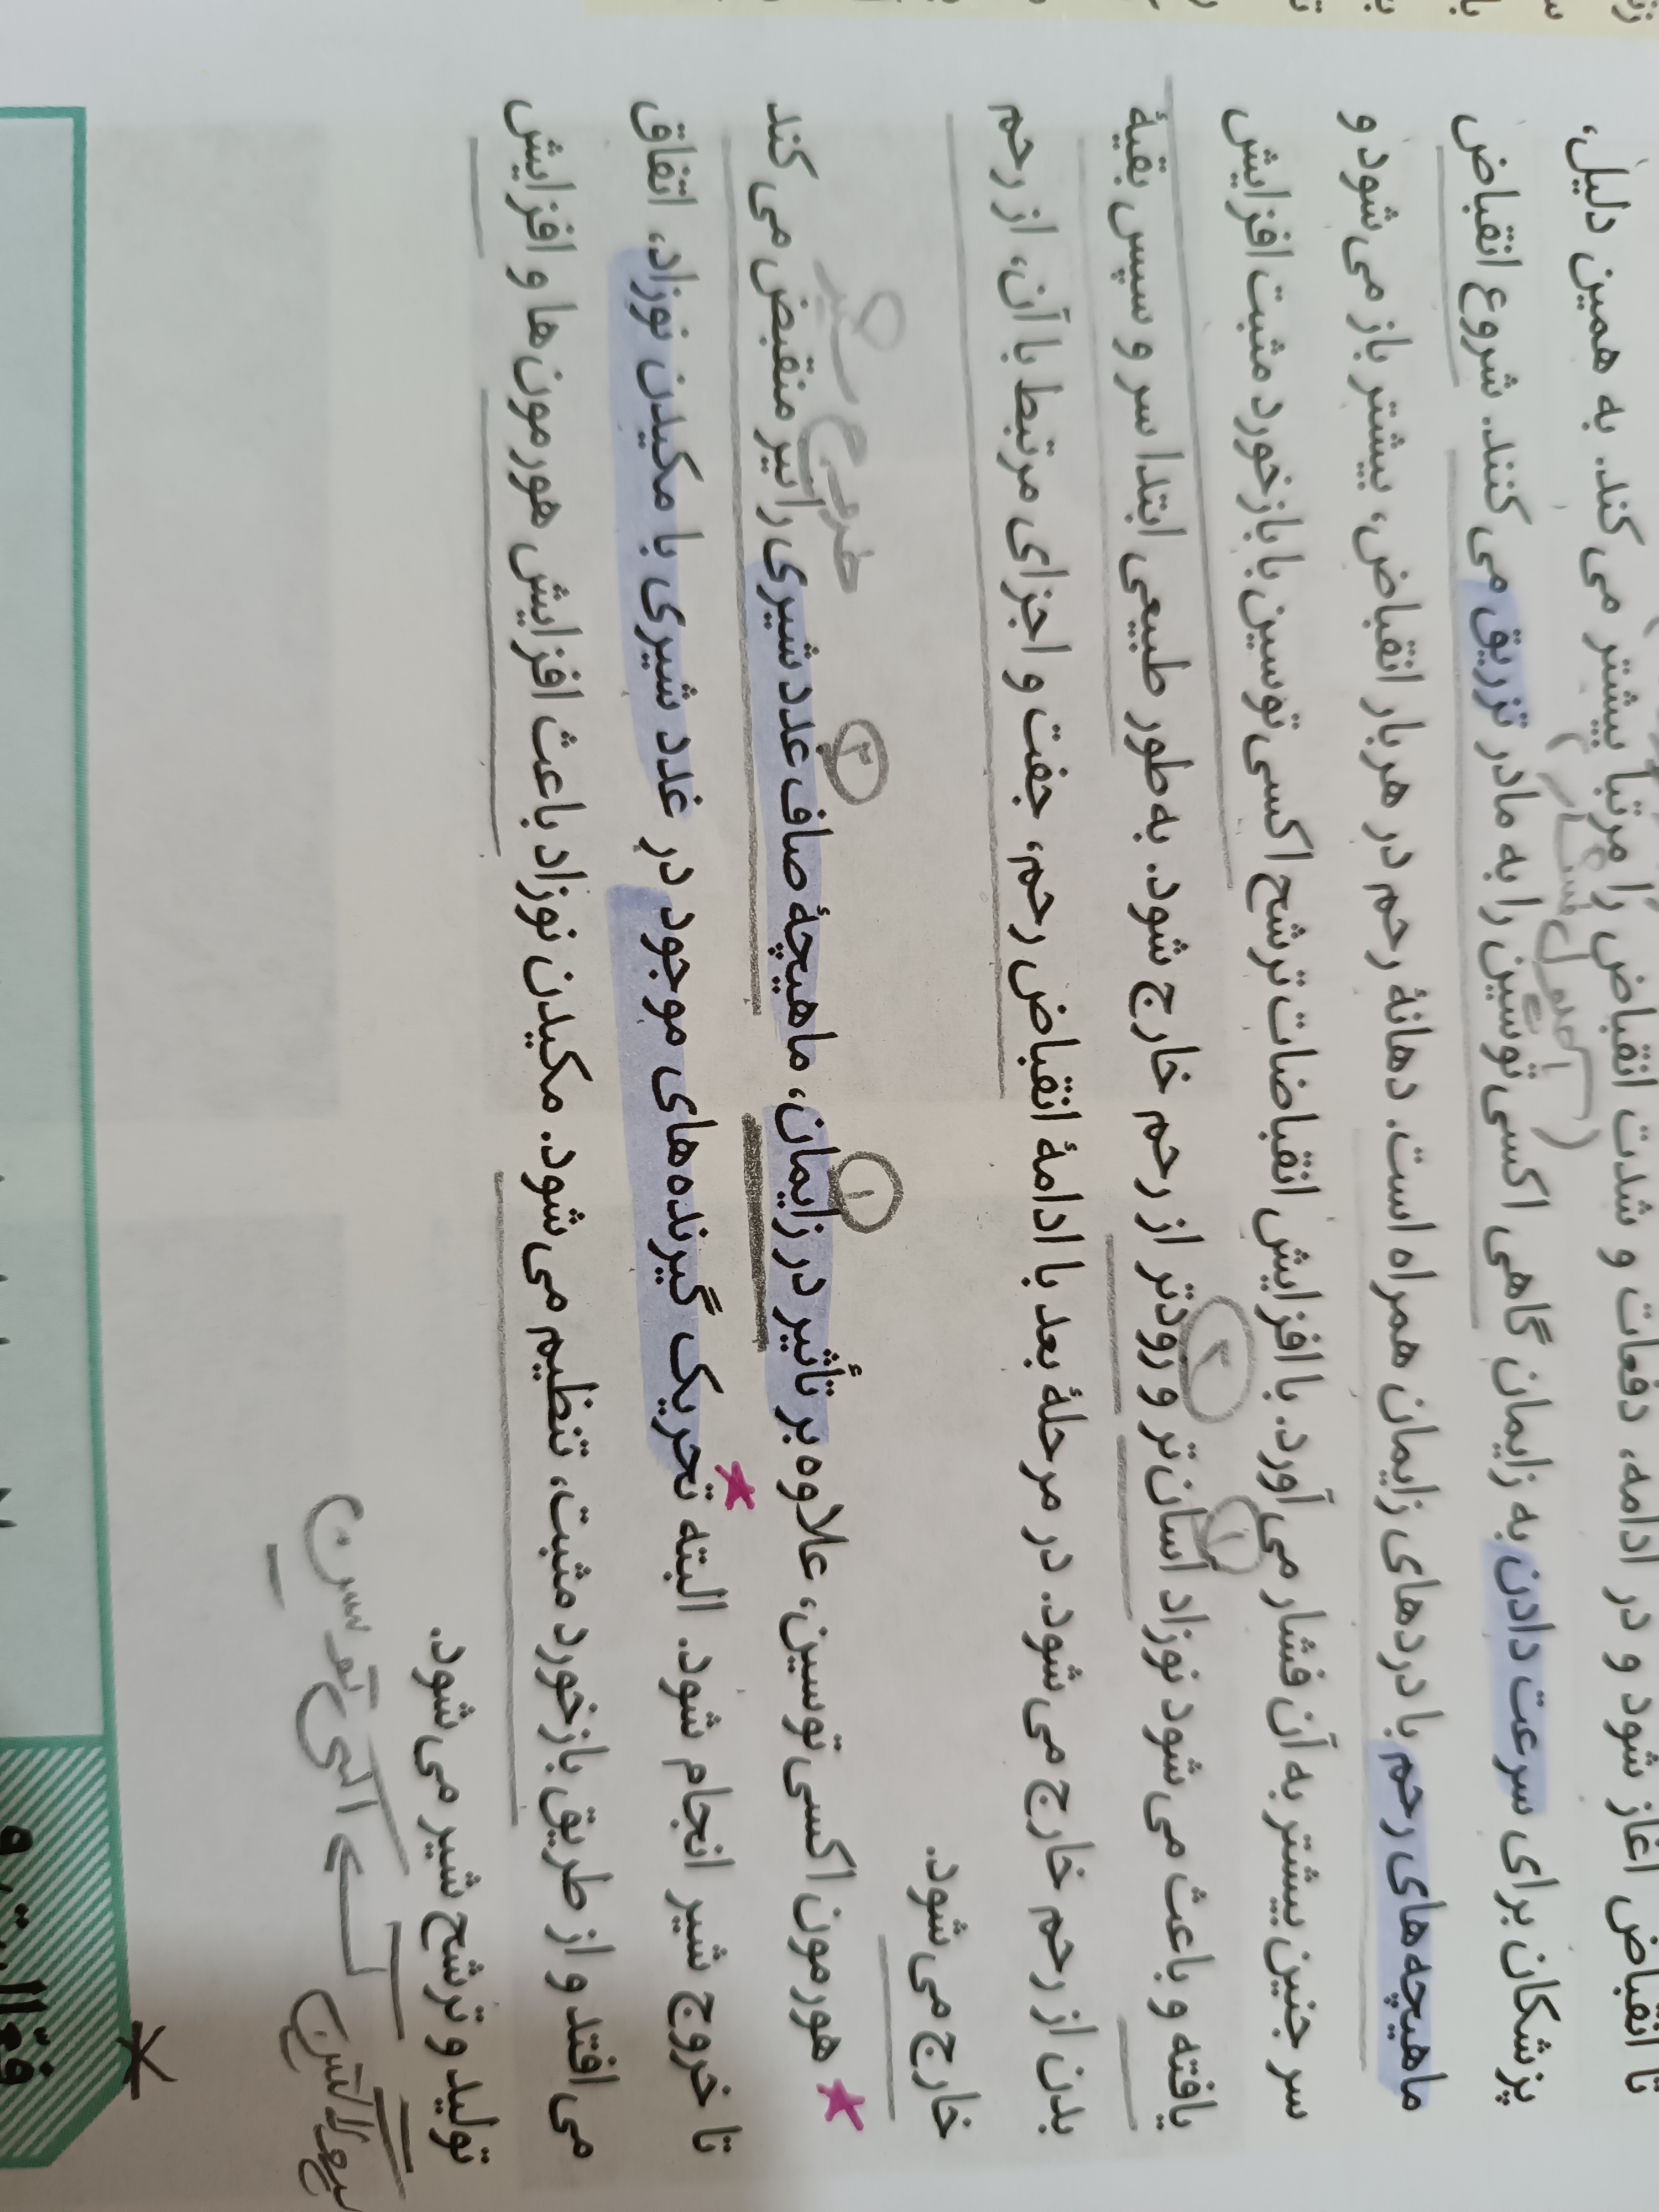 تا انقباض آغاز شود و در ادامه، دفعات و شدت انقباض را مرتباً بیشتر می‌کند. به همین دلیل،
پزشکان برای سرعت دادن به زایمان گاهی اکسی‌توسین را به مادر تزریق می‌کنند. شروع انقباض
ماهیچه‌های رحم با دردهای زایمان همراه است. دهانهٔ رحم در هر بار انقباض، بیشتر باز می‌شود و
سر جنین بیشتر به آن فشار می‌آورد. با افزایش انقباضات ترشح اکسی‌توسین با بازخورد مثبت افزایش
۱ ۲
یافته و باعث می‌شود نوزاد آسان‌تر و زودتر از رحم خارج شود. به طور طبیعی ابتدا سر و سپس بقیهٔ
بدن از رحم خارج می‌شود. در مرحلهٔ بعد با ادامهٔ انقباض رحم، جفت و اجزای مرتبط با آن، از رحم
خارج می‌شود.
۱ ۲ خروج شیر
هورمون اکسی‌توسین، علاوه بر تأثیر در زایمان، ماهیچهٔ صاف غدد شیری را نیز منقبض می‌کند
تا خروج شیر انجام شود. البته تحریک گیرنده‌های موجود در غدد شیری با مکیدن نوزاد، اتفاق
می‌افتد و از طریق بازخورد مثبت، تنظیم می‌شود. مکیدن نوزاد باعث افزایش هورمون‌ها و افزایش
تولید و ترشح شیر می‌شود.
اکسی توسین
پرولاکتین
فعالیت ۹